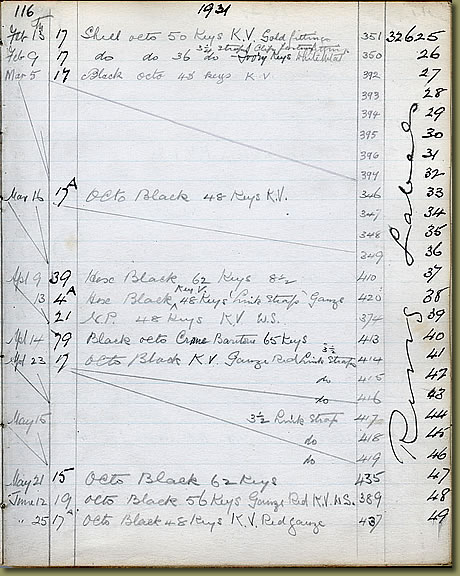 116 1931
Feb 13 17 Shell octo 50 Keys K.V. Gold fittings 351 32625
3½ Straps
Feb 9 17 do do 36 do Ivory Keys White Metal 350 26
Mar 5 17 Black octo 48 Keys K.V. 392 27
393 28
394 29
395 30
396 31
397 32
Mar 16 17A Octo Black 48 Keys K.V. 346 33
347 34
348 35
349 36
Apl 9 39 Hex Black 62 Keys 8½ 410 37
13 4A Hex Black 48 Keys K.V. Link Strap Gauze 420 38
21 N.P. 48 Keys K.V W.S. 374 39
Apl 14 79 Black octo Crane Bariton 65 Keys 413 40
3½
Apl 23 17 Octo Black K.V. Gauze Red Link Strap 414 41
do 415 42
do 416 43
May 15 3½ Link Strap 417 44
do 418 45
do 419 46
May 21 15 Octo Black 62 Keys 435 47
June 12 19 octo Black 56 Keys Gauze Red K.V. W.S. 389 48
" 25 17A Octo Black 48 Keys K.V. Red gauze 437 49
Runng Labels